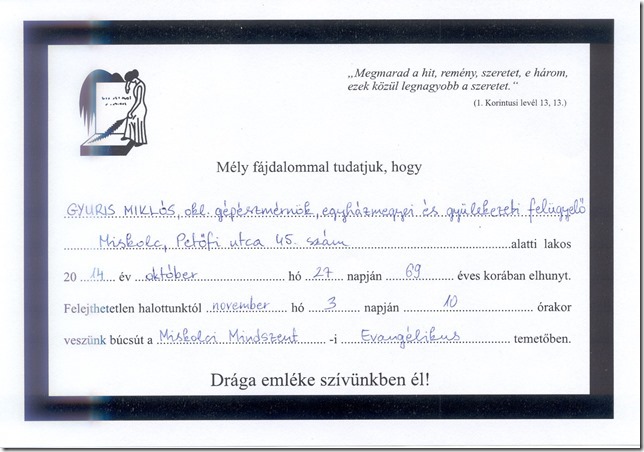 „Megmarad a hit, remény, szeretet, e három,
ezek közül legnagyobb a szeretet.“
(1. Korintusi levél 13, 13.)
Mély fájdalommal tudatjuk, hogy
GYURIS MIKLÓS, okl. gépészmérnök, egyházmegyei és gyülekezeti felügyelő
Miskolc, Petőfi utca 45. szám alatti lakos
20 14 év október hó 27 napján 69 éves korában elhunyt.
Felejthetetlen halottunktól november hó 3 napján 10 órakor
veszünk búcsút a Miskolci Mindszent -i Evangélikus temetőben.
Drága emléke szívünkben él!